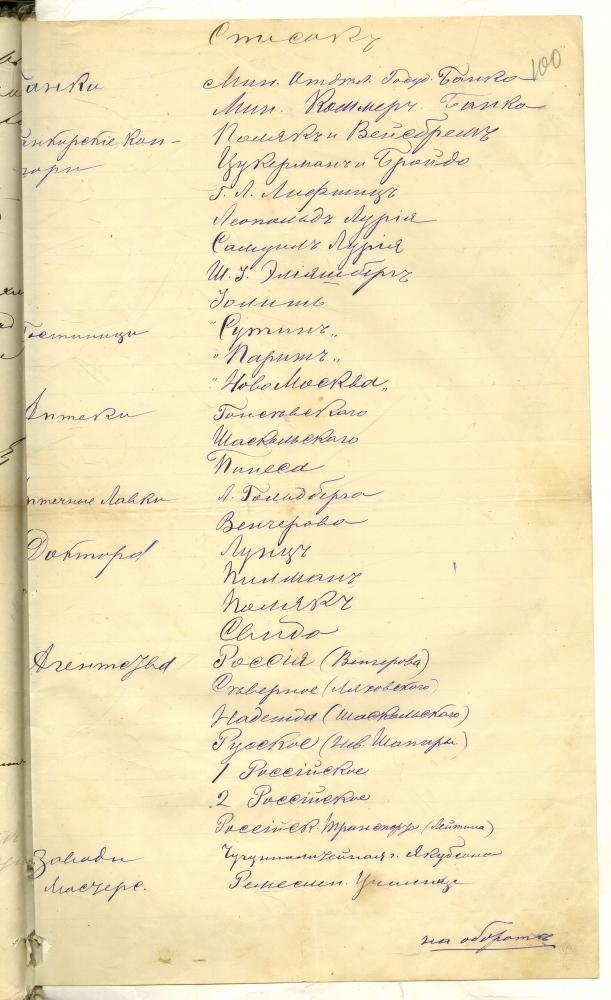 Списокъ
100
Банки Мин. Отдѣл. Госуд. Банка
Мин. Коммерч. Банка
Банкирскіе Кон- Полякъ и Вейсбремъ
торы Цукерманъ и Бройдо
Г. Л. Лифшицъ
Леопольдъ Лурія
Самуилъ Лурія
Ш. З. Эліяшбергъ
Гостиницы "Сутинъ"
"Парижъ"
"Ново Москва"
Аптеки
Шаскольскаго
Пинеса
Аптечные Лавки Л. Гольдберга
Венгерова
Доктора Лунцъ
Пилманъ
Полякъ
Свидо
Агентства Россія (Венгерова)
Сѣверное (Ляховскаго)
Надежда (Шаскольскаго)
Русское (Нев. Шапиры)
1 Россійское
2 Россійское
Россійск. Транспорт. (Лейтина)
Заводы Чугуннолитейная г. Якубсона
Мастерс. Ремеслен. Училище
на оборотѣ